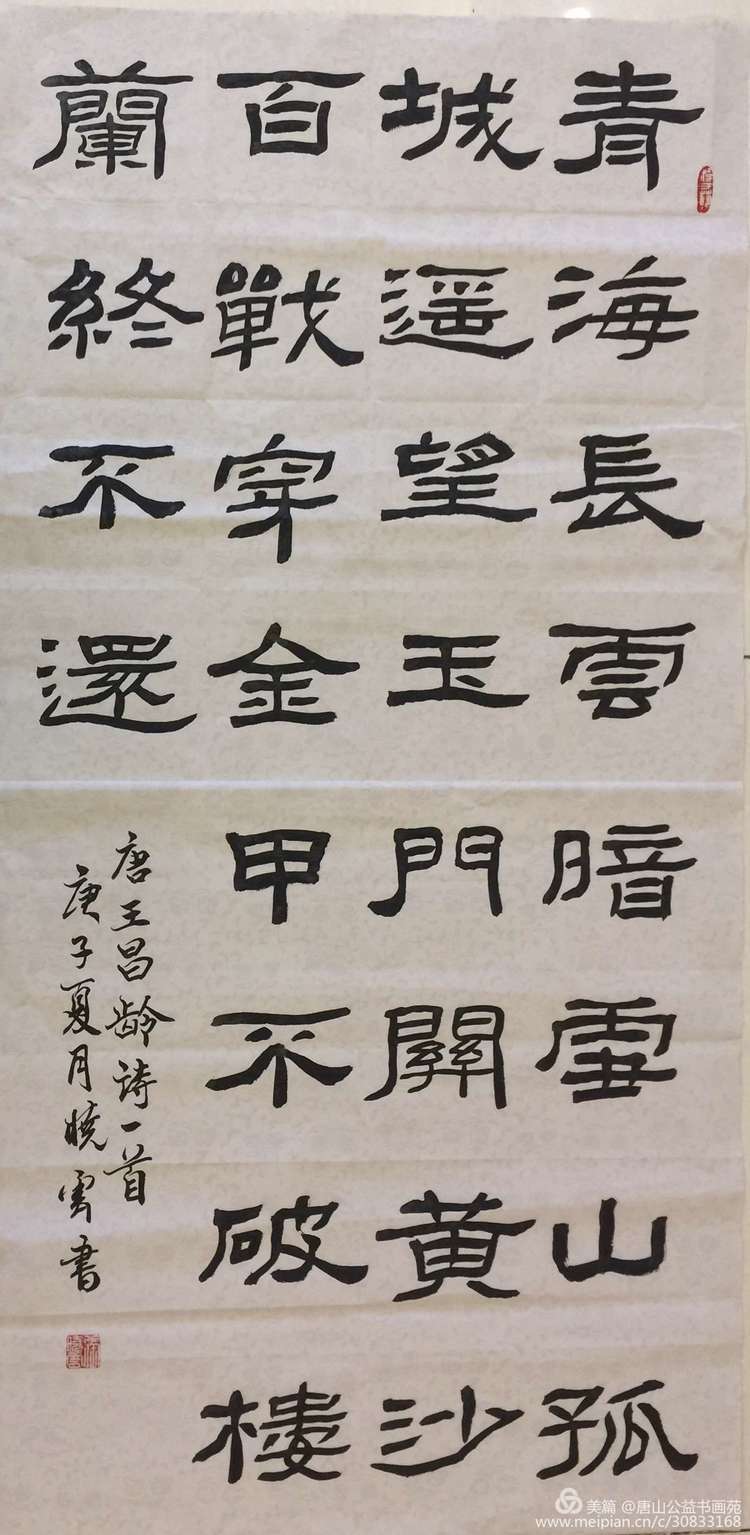 青海長雲暗雪山孤
城遥望玉門關黄沙
百戰穿金甲不破樓
蘭終不還
唐王昌龄詩一首
庚子夏月曉書
美篇 @唐山公益书画苑
www.meipian.cn/c/30833168